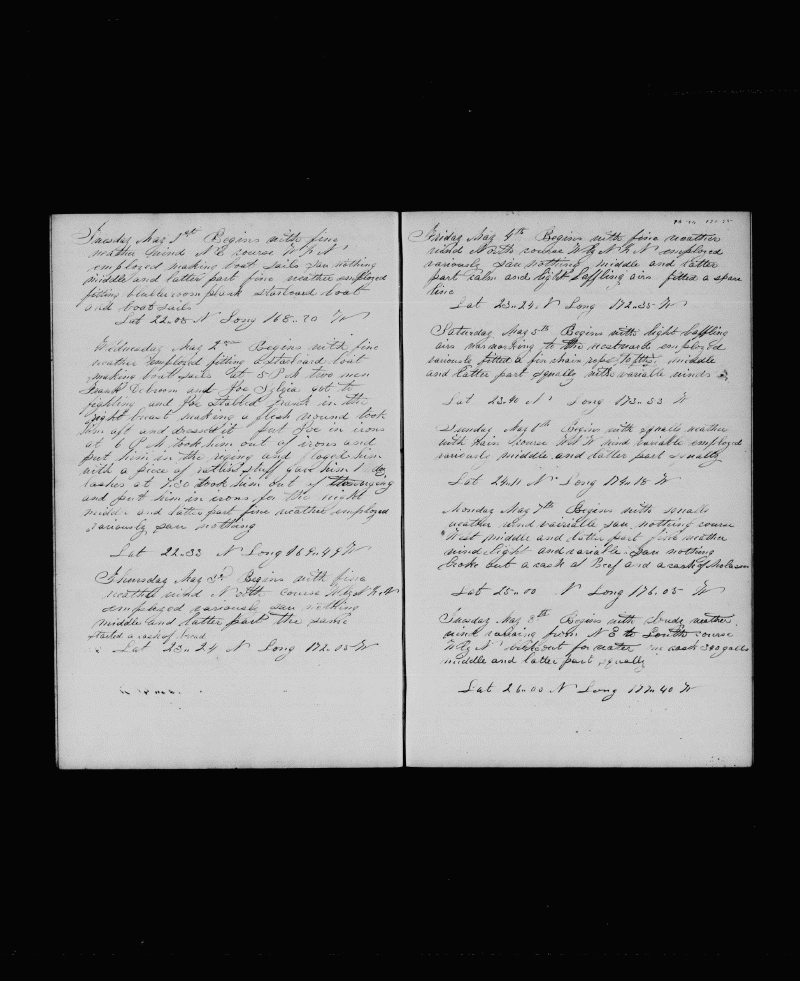 Tuesday May 1st Begins with fine
weather wind N E course W b N
employed making boat sails saw nothing
middle and latter part fine weather employed
fitting plank starboard boat
and boat sails
Lat 22-08 N Long 168-20 W
Wednesday May 2nd Begins with fine
weather employed fitting Starboard boat
making boat sails at 5 P M two men
Frank and Joe got to
fighting and Joe stabbed frank in the
right breast making a flesh wound took
him aft and dressed it put Joe in irons
at 6 P M took him out of irons and
put him in the riging and floged him
with a piece of ratlin stuff gave him 1 doz
lashes at 7.30 took him out of the riging
and put him in irons for the night
middle and latter part fine weather employed
variously saw nothing
Lat 22-33 N Long 169-49 W
Thursday May 3rd Begins with fine
weather wind North course
employed variously saw nothing
middle and latter part the same
started a cask of bread
Lat 23-24 N Long 172-05 W
Friday May 4th Begins with fine weather
wind North course employed
variously saw nothing middle and latter
part calm and light baffling airs fitted a spare
line
Lat 23-24 N Long 172-35 W
Saturday May 5th Begins with light baffling
airs was working to the westward employed
variously fitted a fin chain rope to middle
and latter part squally with variable winds
Lat 23-40 N Long 173-33 W
Sunday May 6th Begins with squally weather
with rain course wind variable employed
variously middle and latter part squally
Lat 24-11 N Long 174-18 W
Monday May 7th Begins with squally
weather wind variable saw nothing course
West middle and latter part fine weather
wind light and variable saw nothing
broke out a cask of Beef and a cask of Molasses
Lat 25-00 N Long 176-05 W
Tuesday May 8th Begins with cloudy weather
wind varying from N E to South course
W by N broke out for water one cask 300 galls
middle and latter part squally
Lat 26-00 N Long 177-40 W